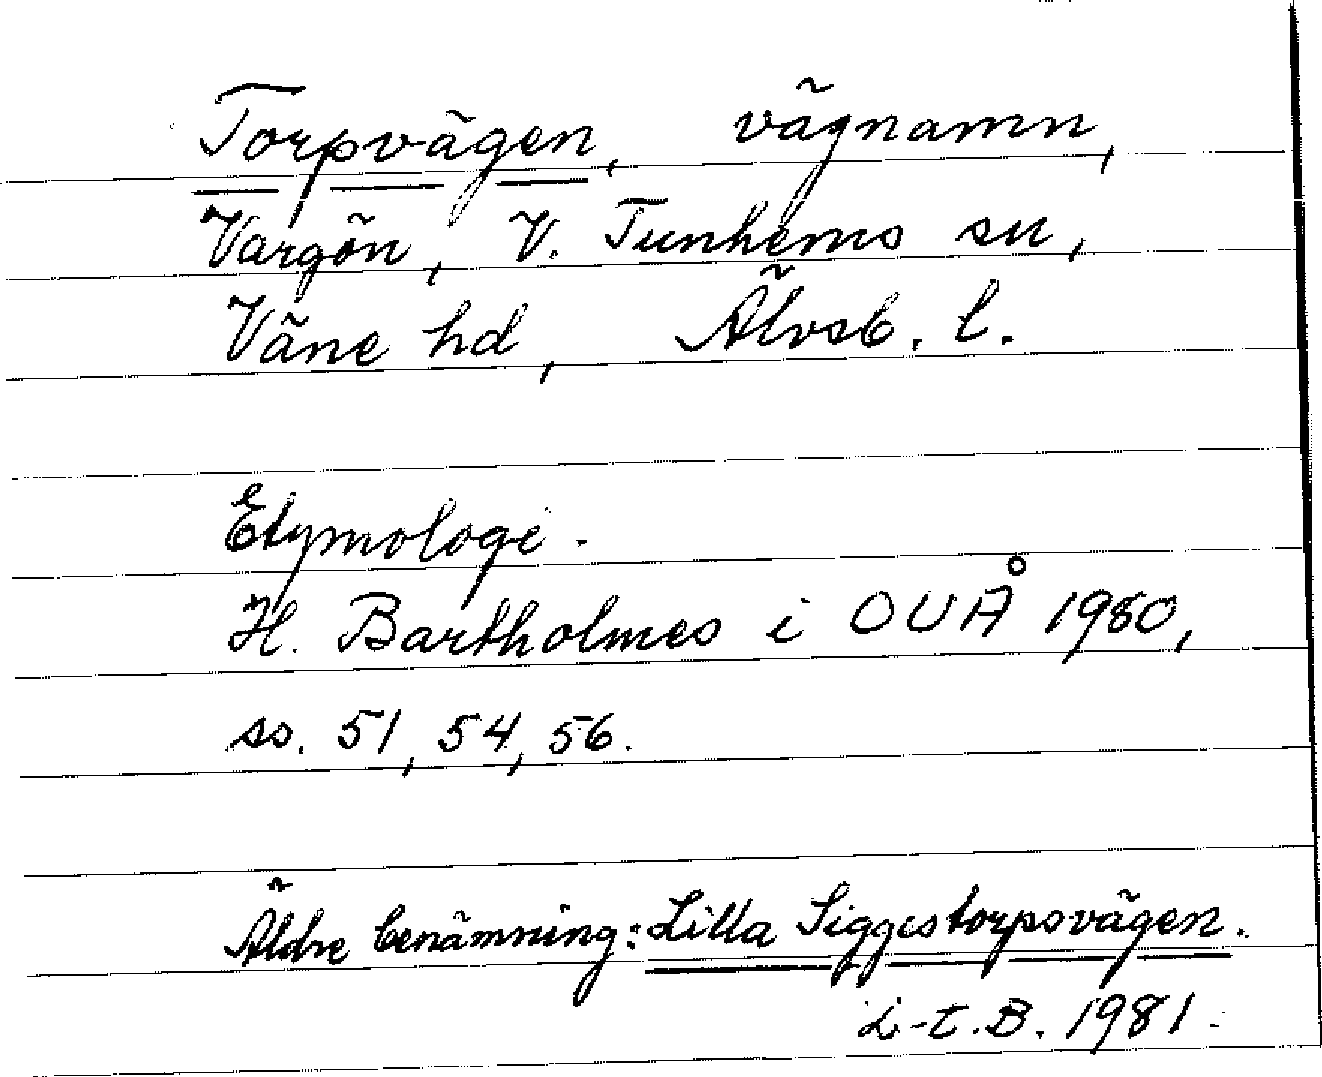 Torpvägen, vägnamn,
Vargön, V. Tunhems sn,
Väne hd, Älvsb. l.
Etymologi.
H. Bartholmes i OUÅ 1980,
ss. 51, 54, 56.
Äldre benämning: Lilla Siggestorpsvägen.
L-t. B. 1981.